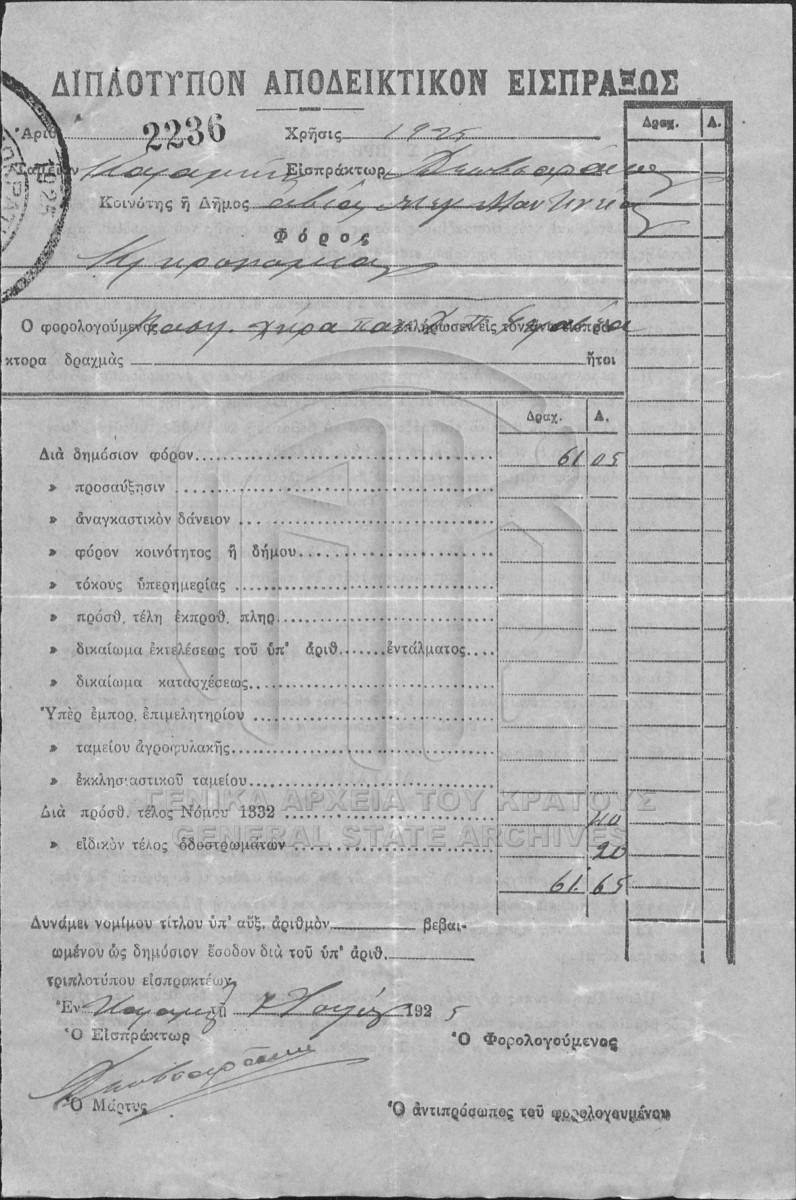 ΔΙΠΛΟΤΥΠΟΝ ΑΠΟΔΕΙΚΤΙΚΟΝ ΕΙΣΠΡΑΞΩΣ
Ἀριθ. 2236 Χρῆσις 1925
Ταμεῖον Εἰσπράκτωρ
Κοινότης ἢ Δῆμος
Φόρος
Ὁ φορολογούμενος χήρα ἐπλήρωσεν εἰς τὸν
κτορα δραχμὰς ἤτοι
Δραχ. Λ.
Δραχ. Λ.
Διὰ δημόσιον φόρον 61 05
» προσαύξησιν
» ἀναγκαστικὸν δάνειον
» φόρον κοινότητος ἢ δήμου
» τόκους ὑπερημερίας
» πρόσθ. τέλη ἐκπροθ. πληρ.
» δικαίωμα ἐκτελέσεως τοῦ ὑπ' ἀριθ. ἐντάλματος
» δικαίωμα κατασχέσεως
Ὑπὲρ ἐμπορ. ἐπιμελητηρίου
» ταμείου ἀγροφυλακῆς
» ἐκκλησιαστικοῦ ταμείου
ΓΕΝΙΚΑ ΑΡΧΕΙΑ ΤΟΥ ΚΡΑΤΟΥΣ
Διὰ πρόσθ. τέλος Νόμου 1332 40
GENERAL STATE ARCHIVES
» εἰδικὸν τέλος ὁδοστρωμάτων 20
61 65
Δυνάμει νομίμου τίτλου ὑπ' αὔξ. ἀριθμὸν βεβαι-
ωμένου ὡς δημόσιον ἔσοδον διὰ τοῦ ὑπ' ἀριθ.
τριπλοτύπου εἰσπρακτέων
Ἐν τῇ 1925
Ὁ Εἰσπράκτωρ Ὁ Φορολογούμενος
Ὁ Μάρτυς Ὁ ἀντιπρόσωπος τοῦ φορολογουμένου